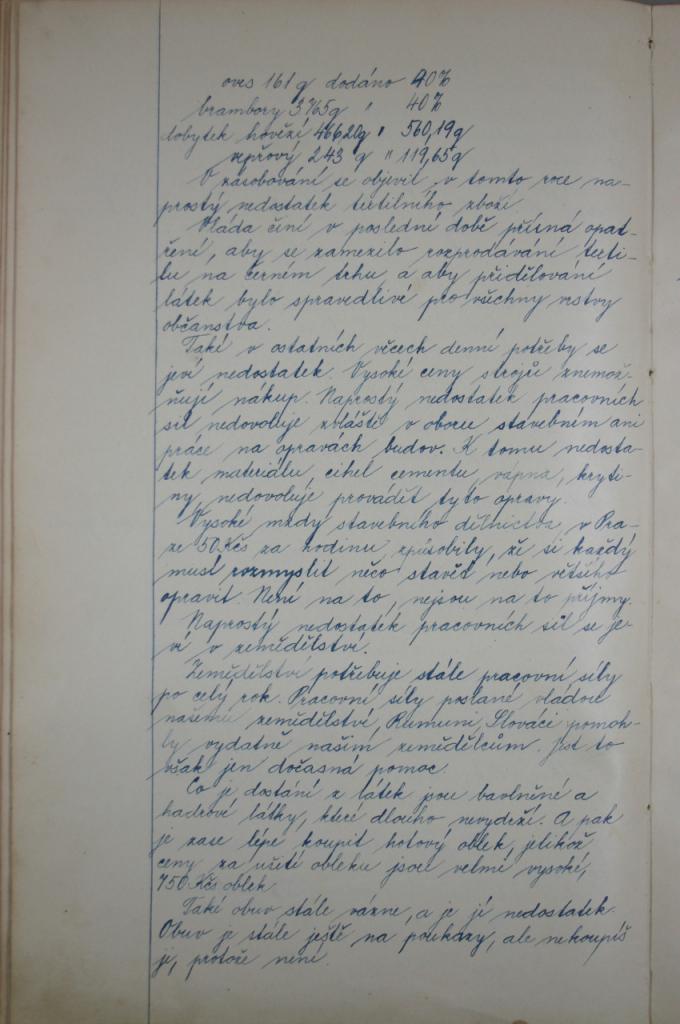 oves 161 q dodáno 40%
brambory 3765q " 40%
dobytek hovězí 46620q " 560,19q
vepřový 243 q " 119,65q
V zásobování se objevil v tomto roce na-
prostý nedostatek textilního zboží.
Vláda činí v poslední době přísná opat-
ření, aby se zamezilo rozprodávání texti-
lu na černém trhu, a aby přidělování
látek bylo spravedlivé pro všechny vrstvy
občanstva.
Také v ostatních věcech denní potřeby se
jeví nedostatek. Vysoké ceny strojů znemož-
ňují nákup. Naprostý nedostatek pracovních
sil nedovoluje zvláště v oboru stavebním ani
práce na opravách budov. K tomu nedosta-
tek materiálu, cihel cementu, vápna, kryti-
ny, nedovoluje provádět tyto opravy.
Vysoké mzdy stavebního dělnictva v Pra-
ze 50 Kčs za hodinu, způsobily, že si každý
musí rozmyslit něco stavět nebo většího
opravit. Není na to, nejsou na to příjmy.
Naprostý nedostatek pracovních sil se je-
ví v zemědělství.
Zemědělství potřebuje stále pracovní síly
po celý rok. Pracovní síly poslané vládou
našemu zemědělství, Rumuni, Slováci pomoh-
ly vydatně našim zemědělcům. Jest to
však jen dočasná pomoc.
Co je dostání z látek jsou bavlněné a
hadrové látky, které dlouho nevydrží. A pak
je zase lépe koupit hotový oblek, jelikož
ceny za ušití obleku jsou velmi vysoké,
750 Kčs oblek.
Také obuv stále vázne, a je jí nedostatek.
Obuv je stále ještě na poukazy, ale nekoupíš
ji, protože není.